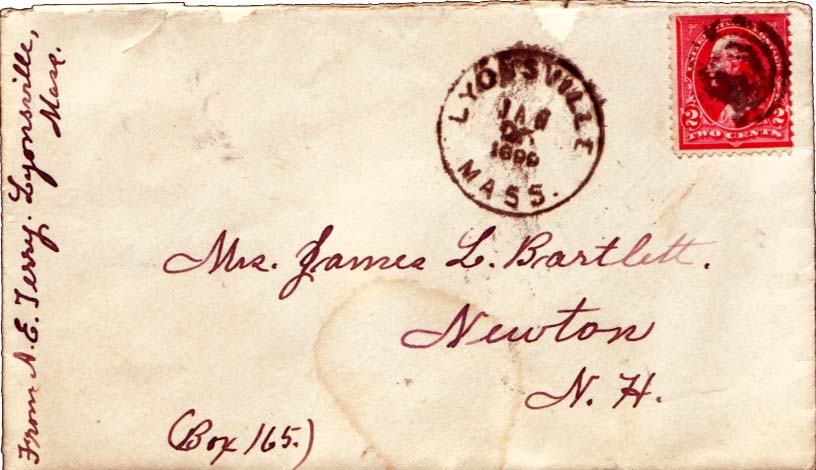 From A. E. Terry. Lyonsville,
Mass.
LYONSVILLE
JAN
MASS.
2 2
TWO CENTS
Mrs. James L. Bartlett.
Newton
N. H.
(Box 165.)